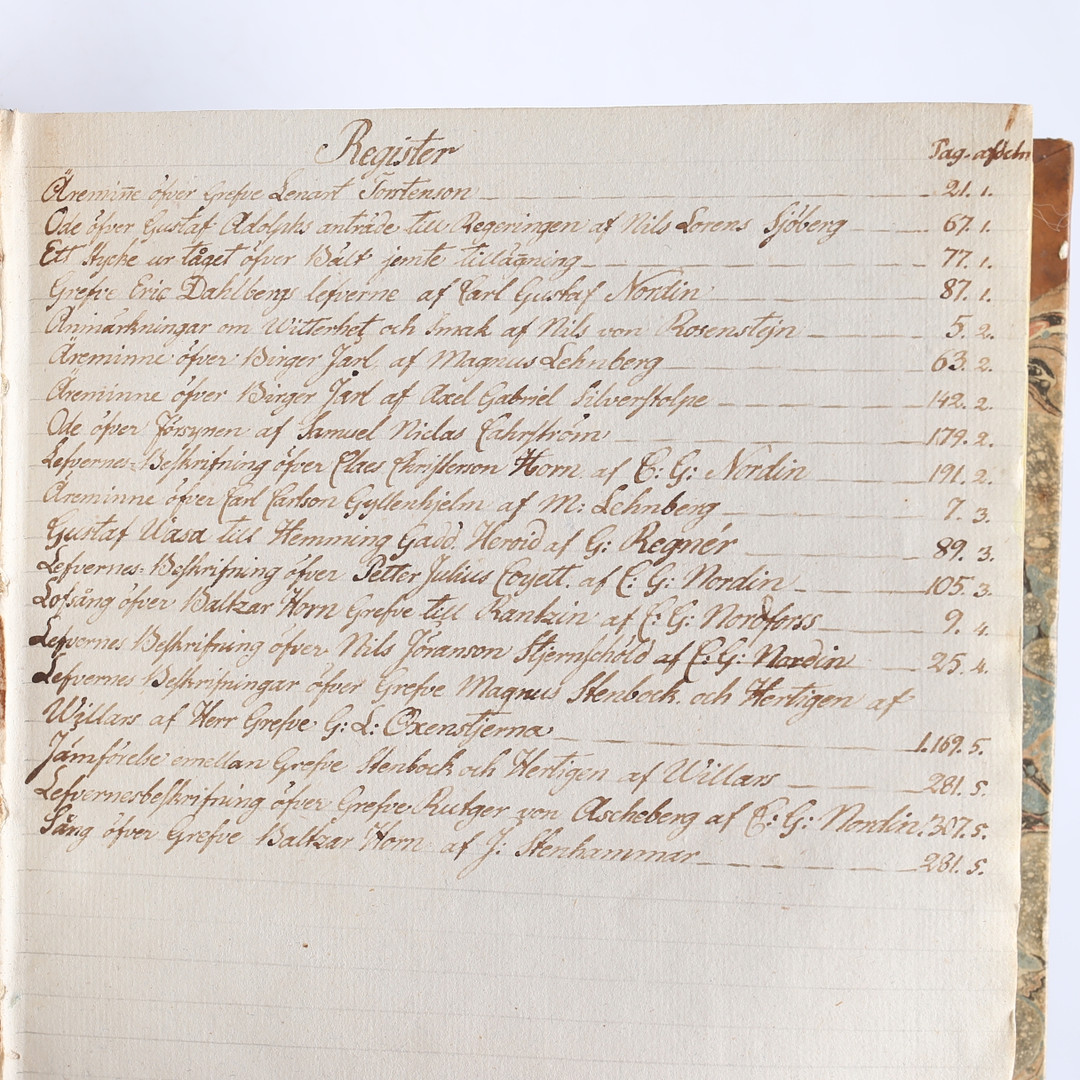 Register
Pag. afdeln
Äreminñe öfver Grefve Lenart Torstenson 21. 1.
Ode öfver Gustaf Adolphs anträde till Regeringen af Nils Lorens Sjöberg 67. 1.
Ett stycke ur tåget öfver Bält jemte tillägning 77. 1.
Grefve Eric Dahlbergs lefverne af Carl Gustaf Nordin 87. 1.
Anmärkningar om Witterhet och Smak af Nils von Rosenstejn 5. 2.
Äreminne öfver Birger Jarl, af Magnus Lehnberg 63. 2.
Äreminne öfver Birger Jarl af Axel Gabriel Silverstolpe 142. 2.
Ode öfver Försynen af Samuel Niclas Cahrström 179. 2.
Lefvernes-Beskrifning öfver Claes Christerson Horn af C: G: Nordin 191. 2.
Äreminne öfver Carl Carlson Gyllenhjelm af M: Lehnberg 7. 3.
Gustaf Wasa till Hemming Gadd. Heroid af G: Regnér 89. 3.
Lefvernes-Beskrifning öfver Petter Julius Coyett. af C: G: Nordin 105. 3.
Lofsång öfver Baltzar Horn Grefve till Rantzin af C: G: Nordforss 9. 4.
Lefvernes Beskrifning öfver Nils Jöranson Stjernschöld af C: G: Nordin 25. 4.
Lefvernes Beskrifningar öfver Grefve Magnus Stenbock och Hertigen af
Willars af Herr Grefve G: L: Oxenstjerna 1.169. 5.
Jämförelse emellan Grefve Stenbock och Hertigen af Willars 281. 5.
Lefvernesbeskrifning öfver Grefve Rutger von Ascheberg af C: G: Nordin. 307. 5.
Sång öfver Grefve Baltzar Horn af J: Stenhammar 281. 5.